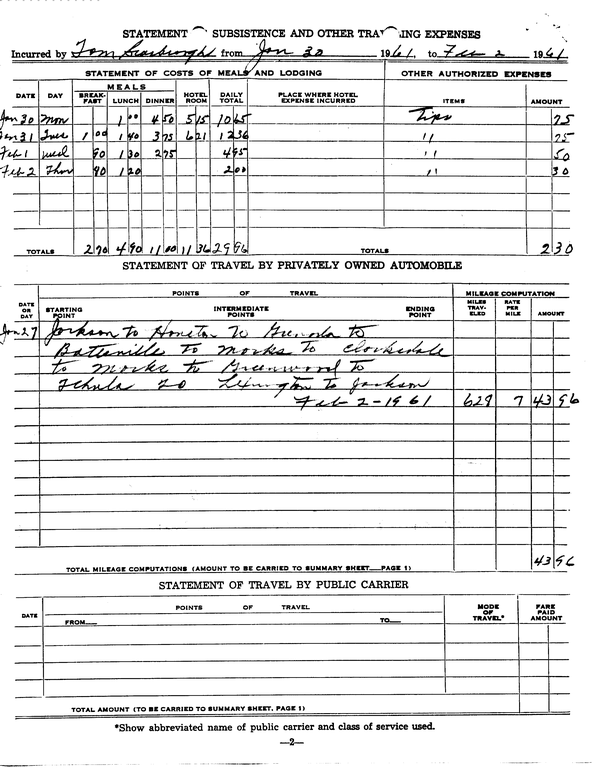 STATEMENT SUBSISTENCE AND OTHER TRA ING EXPENSES
Incurred by Tom Scarbrough from Jan 30 1961, to Feb 2 1961
STATEMENT OF COSTS OF MEALS AND LODGING OTHER AUTHORIZED EXPENSES
MEALS
DATE DAY BREAK-FAST LUNCH DINNER HOTEL ROOM DAILY TOTAL PLACE WHERE HOTEL EXPENSE INCURRED ITEMS AMOUNT
Jan 30 Mon 1 00 4 50 5 15 10 65 Tips 75
Jan 31 Tues 1 00 1 40 3 75 6 21 12 36 " 75
Feb 1 Wed 90 1 30 2 75 4 95 " 50
Feb 2 Thur 80 1 20 2 00 " 30
TOTALS 2 70 4 90 11 00 11 36 29 96 TOTALS 2 30
STATEMENT OF TRAVEL BY PRIVATELY OWNED AUTOMOBILE
POINTS OF TRAVEL MILEAGE COMPUTATION
DATE OR DAY STARTING POINT INTERMEDIATE POINTS ENDING POINT MILES TRAV-ELED RATE PER MILE AMOUNT
Jan 27 Jackson to Houston to Grenada to
Batesville to Marks to Clarksdale
to Marks to Greenwood to
Tchula to Lexington to Jackson
Feb 2-1961 628 7 43 96
43 96
TOTAL MILEAGE COMPUTATIONS (AMOUNT TO BE CARRIED TO SUMMARY SHEET—PAGE 1)
STATEMENT OF TRAVEL BY PUBLIC CARRIER
DATE POINTS OF TRAVEL MODE OF TRAVEL* FARE PAID AMOUNT
FROM— TO—
TOTAL AMOUNT (TO BE CARRIED TO SUMMARY SHEET. PAGE 1)
*Show abbreviated name of public carrier and class of service used.
—2—